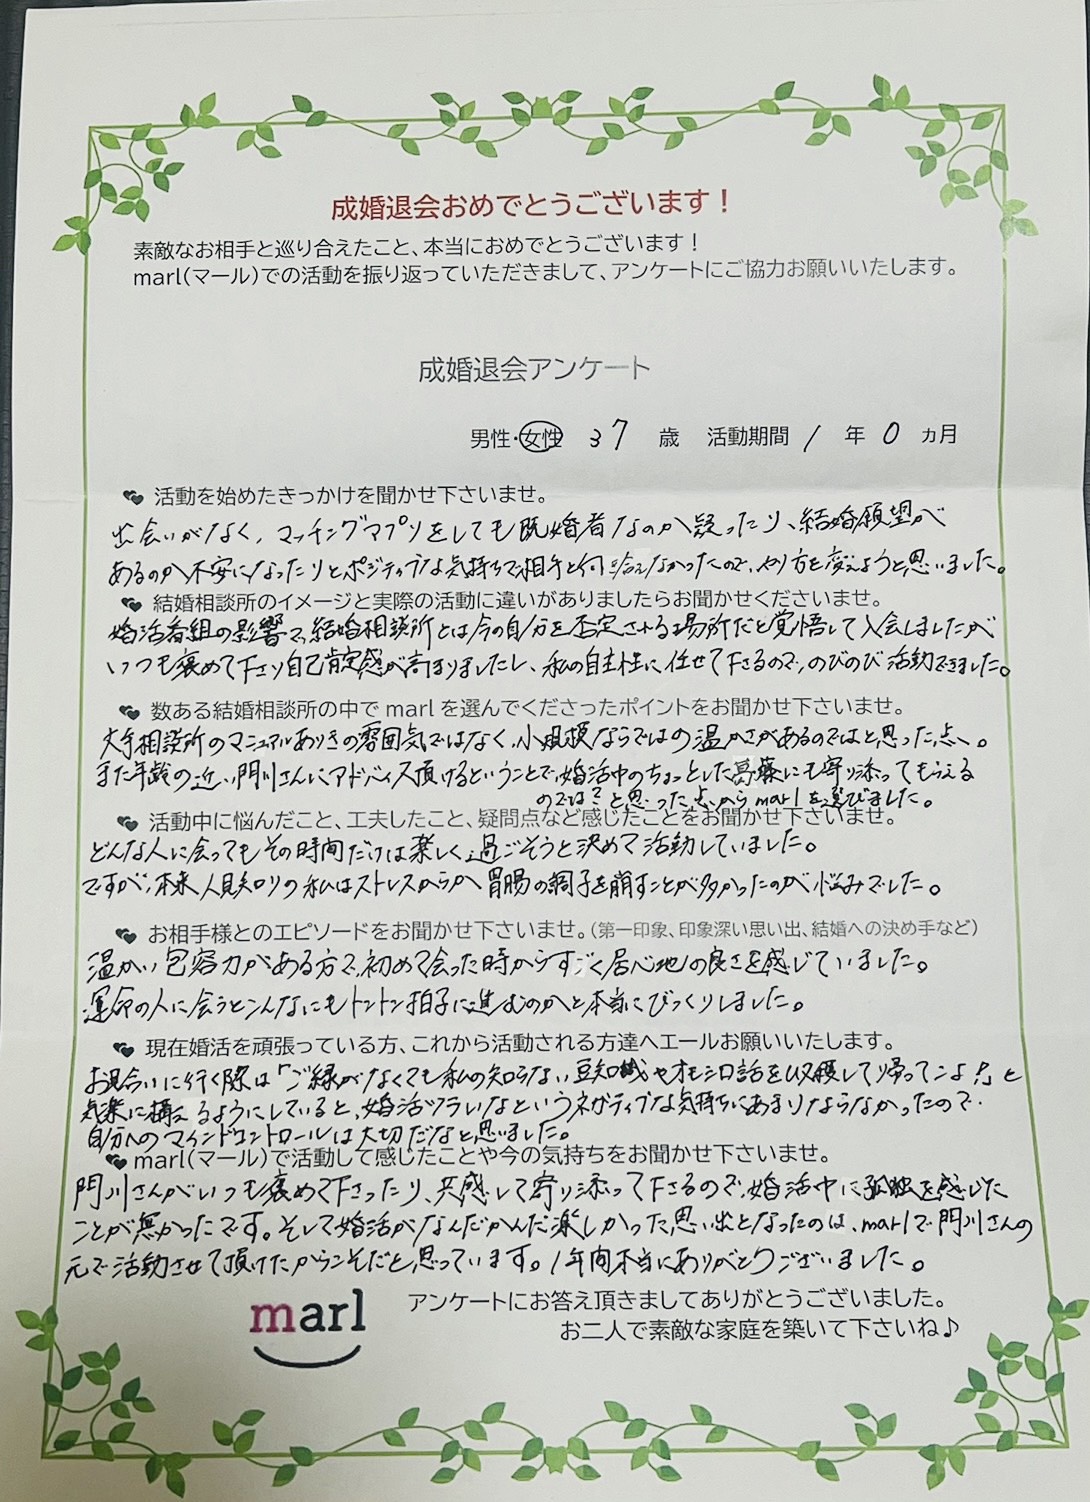 成婚退会おめでとうございます！
素敵なお相手と巡り合えたこと、本当におめでとうございます！
marl(マール)での活動を振り返っていただきまして、アンケートにご協力お願いいたします。
成婚退会アンケート
男性・女性 37 歳 活動期間 1 年 0 ヵ月
活動を始めたきっかけを聞かせ下さいませ。
出会いがなく、マッチングアプリをしても既婚者なのか疑ったり、結婚願望が
あるのか不安になったりとポジティブな気持ちで相手と向き合えなかったので、やり方を変えようと思いました。
結婚相談所のイメージと実際の活動に違いがありましたらお聞かせくださいませ。
婚活番組の影響で、結婚相談所とは今の自分を否定される場所だと覚悟して入会しましたが
いつも褒めて下さり自己肯定感が高まりましたし、私の自主性に任せて下さるので、のびのび活動できました。
数ある結婚相談所の中で marl を選んでくださったポイントをお聞かせ下さいませ。
大手相談所のマニュアルありきの雰囲気ではなく、小規模ならではの温かさがあるのではと思った点へ。
また年齢の近い門川さんにアドバイス頂けるということで、婚活中のちょっとした葛藤にも寄り添ってもらえる
のでは？と思った点からmarlを選びました。
活動中に悩んだこと、工夫したこと、疑問点など感じたことをお聞かせ下さいませ。
どんな人に会ってもその時間だけは楽しく過ごそうと決めて活動していました。
ですが、本来人見知りの私はストレスからか胃腸の調子を崩すことが多かったのが悩みでした。
お相手様とのエピソードをお聞かせ下さいませ。(第一印象、印象深い思い出、結婚への決め手など)
温かい包容力がある方で、初めて会った時からすごく居心地の良さを感じていました。
運命の人に会うとこんなにもトントン拍子に進むのかと本当にびっくりしました。
現在婚活を頑張っている方、これから活動される方達へエールお願いいたします。
お見合いに行く際は「ご縁がなくても私の知らない豆知識やオモシロ話を収穫して帰ってこよ！」と
気楽に構えるようにしていると、婚活ツラいなというネガティブな気持ちにあまりならなかったので
自分へのマインドコントロールは大切だなと思いました。
marl(マール)で活動して感じたことや今の気持ちをお聞かせ下さいませ。
門川さんがいつも褒めて下さったり、共感して寄り添って下さるので、婚活中に孤独を感じた
ことが無かったです。そして婚活がなんだかんだ楽しかった思い出となったのは、marlで門川さんの
元で活動させて頂けたからこそだと思っています。1年間本当にありがとうございました。
marl
アンケートにお答え頂きましてありがとうございました。
お二人で素敵な家庭を築いて下さいね♪